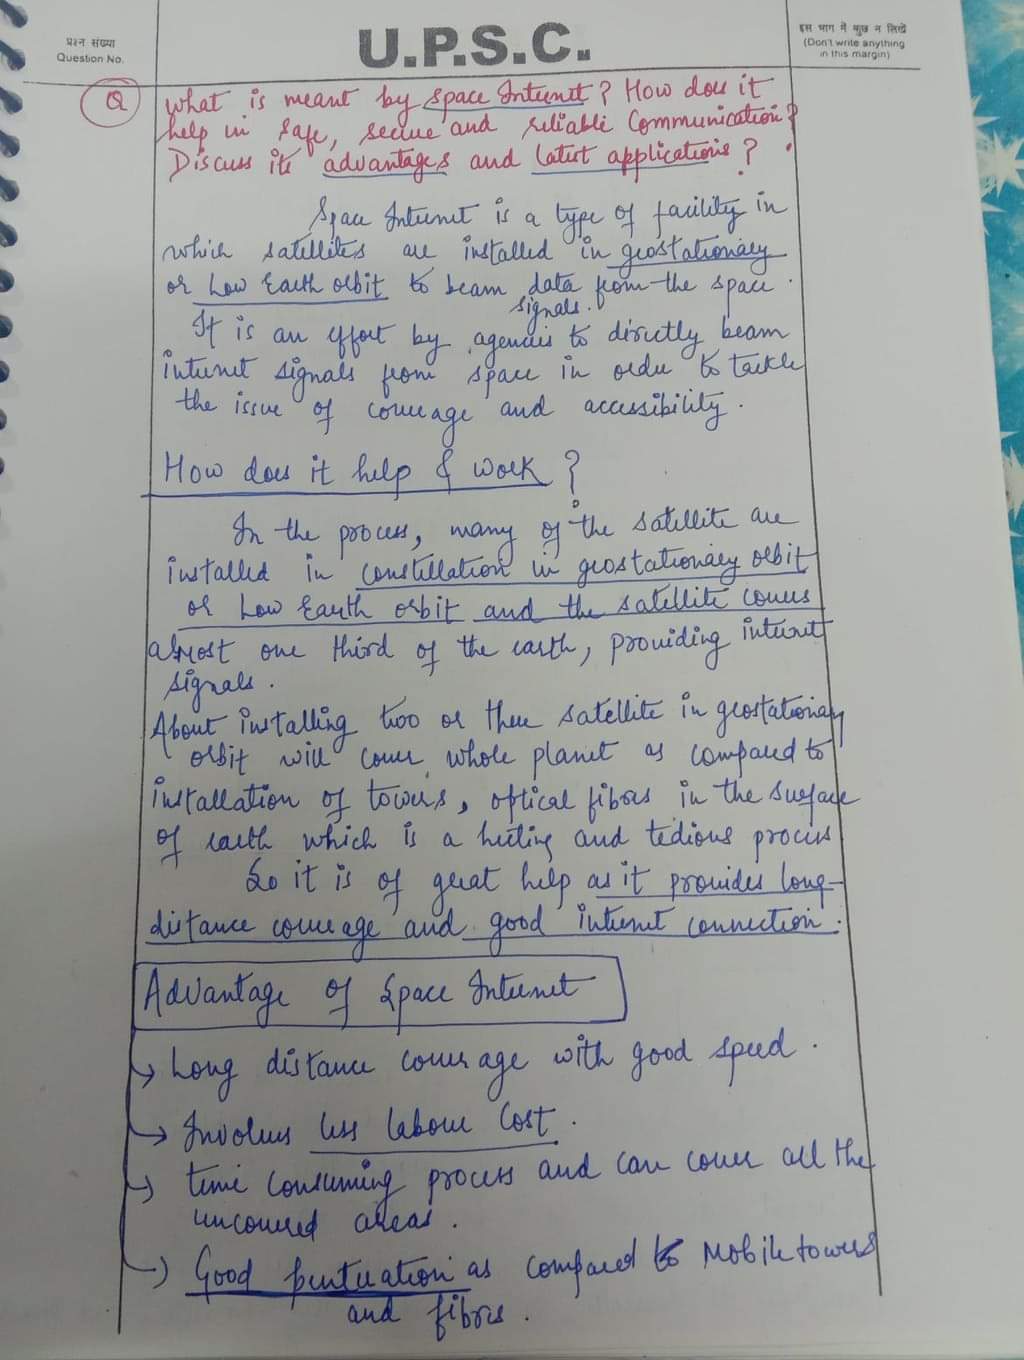 प्रश्न संख्या
Question No.
U.P.S.C.
इस भाग में कुछ न लिखें
(Don't write anything
in this margin)
Q What is meant by Space Internet? How does it
help in safe, secure and reliable Communication?
Discuss its advantages and latest applications?
Space Internet is a type of facility in
which satellites are installed in geostationary
or Low Earth orbit to beam data from the space.
signals.
It is an effort by agencies to directly beam
internet signals from space in order to tackle
the issue of coverage and accessibility.
How does it help & work?
In the process, many of the satellite are
installed in constellation in geostationary orbit
or Low Earth orbit and the satellite covers
almost one third of the earth, providing internet
signals.
About installing two or three satellite in geostationary
orbit will cover whole planet as compared to
installation of towers, optical fibres in the surface
of earth which is a and tedious process
So it is of great help as it provides long-
distance coverage and good internet connection.
Advantage of Space Internet
→ Long distance coverage with good speed.
→ Involves less labour cost.
→ time consuming process and can cover all the
uncovered areas.
→ Good as compared to Mobile towers
and fibres.